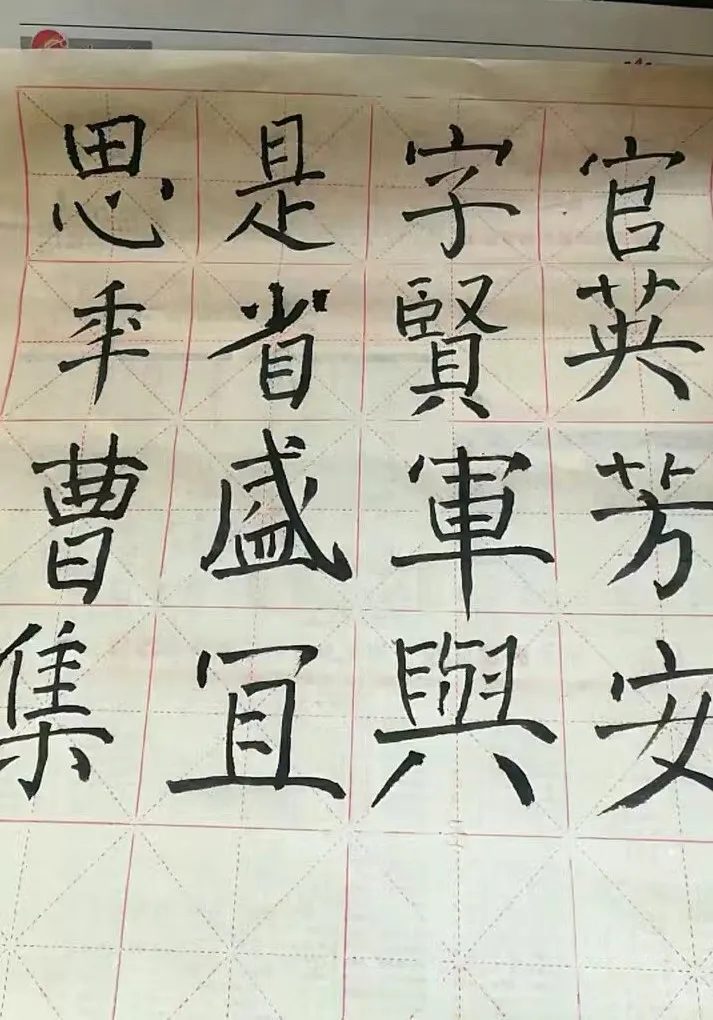 官英芳安
字賢軍與
是省盛冝
思曹集